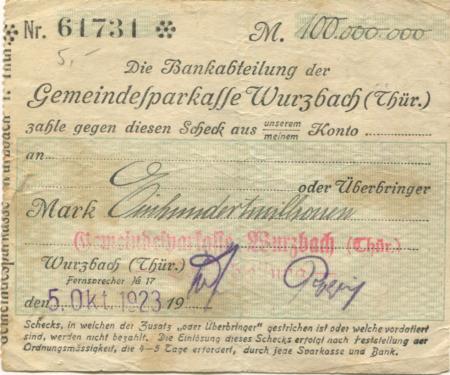 Nr. 61731 M. 100.000.000
5,-
Die Bankabteilung der
Gemeindesparkasse Wurzbach (Thür.)
zahle gegen diesen Scheck aus unserem meinem Konto
an
oder Überbringer
Mark Einhundertmillionen
Gemeindesparkasse Wurzbach (Thür.)
Wurzbach (Thür.)
Fernsprecher № 17
den 5. Okt. 1923 19
Schecks, in welchen der Zusatz „oder Überbringer" gestrichen ist oder welche vordatiert
sind, werden nicht bezahlt. Die Einlösung dieses Schecks erfolgt nach Feststellung der
Ordnungsmässigkeit, die 4-5 Tage erfordert, durch jene Sparkasse und Bank.
Gemeindesparkasse Wurzbach i. Thür.